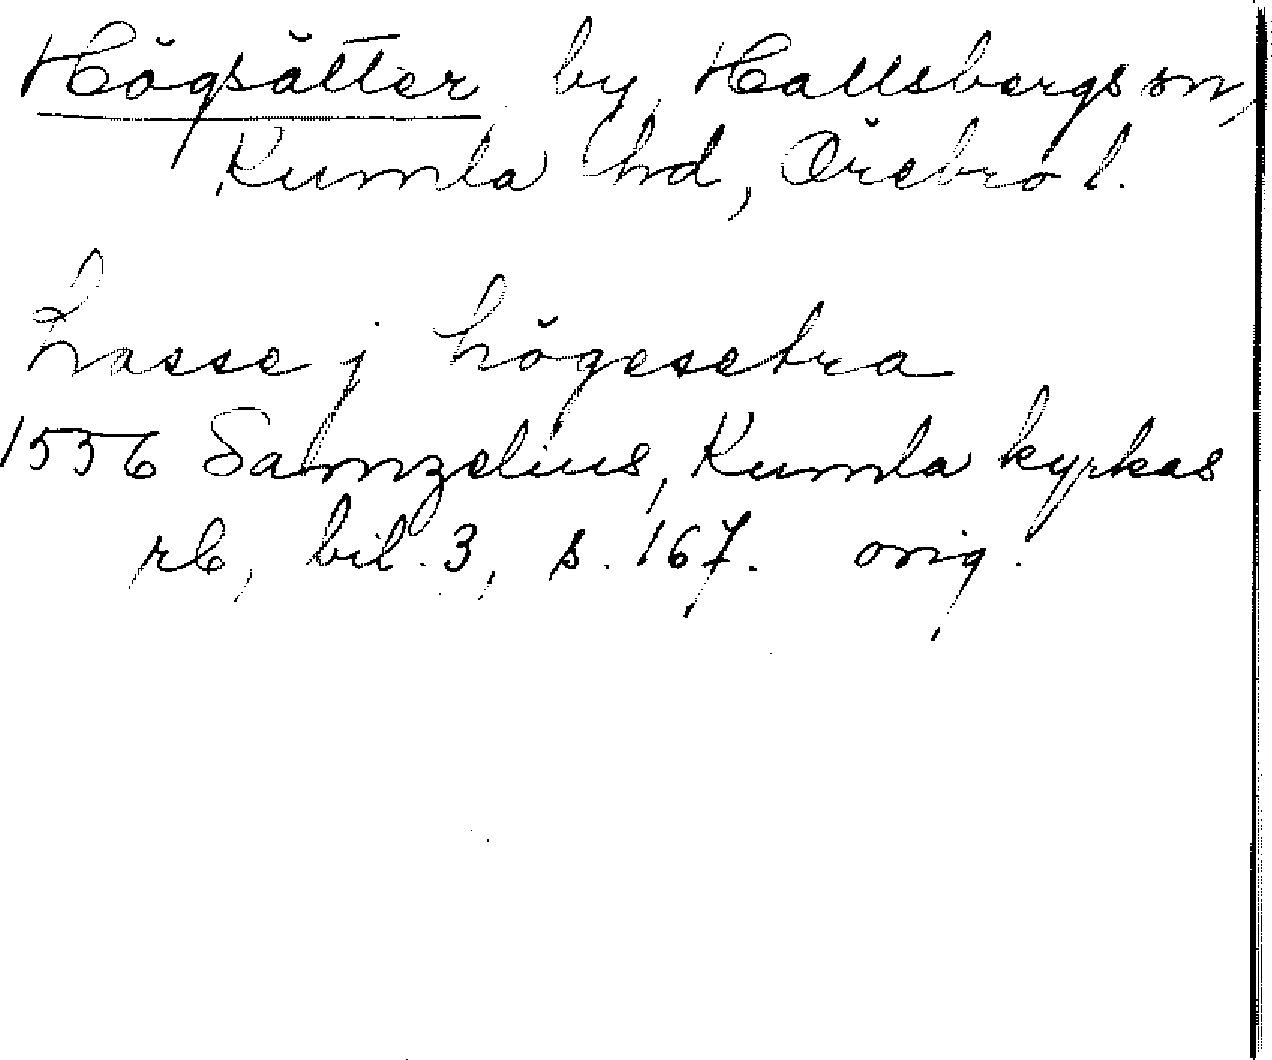 Högsätter by, Hallsbergs sn,
Kumla hd, Örebro l.
Lasse j högesetra
1556 Samzelius, Kumla kyrkas
rb, bil. 3, s. 167. orig.